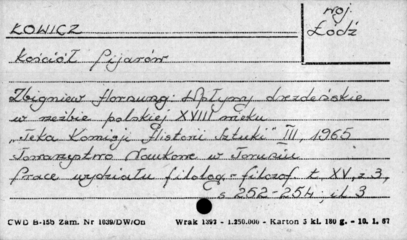 woj.
ŁOWICZ Łódź
Kościół Pijarów
Zbigniew Hornung: Wpływy drezdeńskie
w rzeźbie polskiej XVIII wieku
„Teka Komisji Historii Sztuki" III, 1965
Towarzystwo Naukowe w Toruniu
Prace wydziału filolog.-filozof. t. XV, z. 3,
s 252-254; il. 3
CWD B-15b Zam. Nr 1039/DW/On Wrak 1397 - 1.250.000 - Karton 3 kl. 180 g. - 10. 1. 67